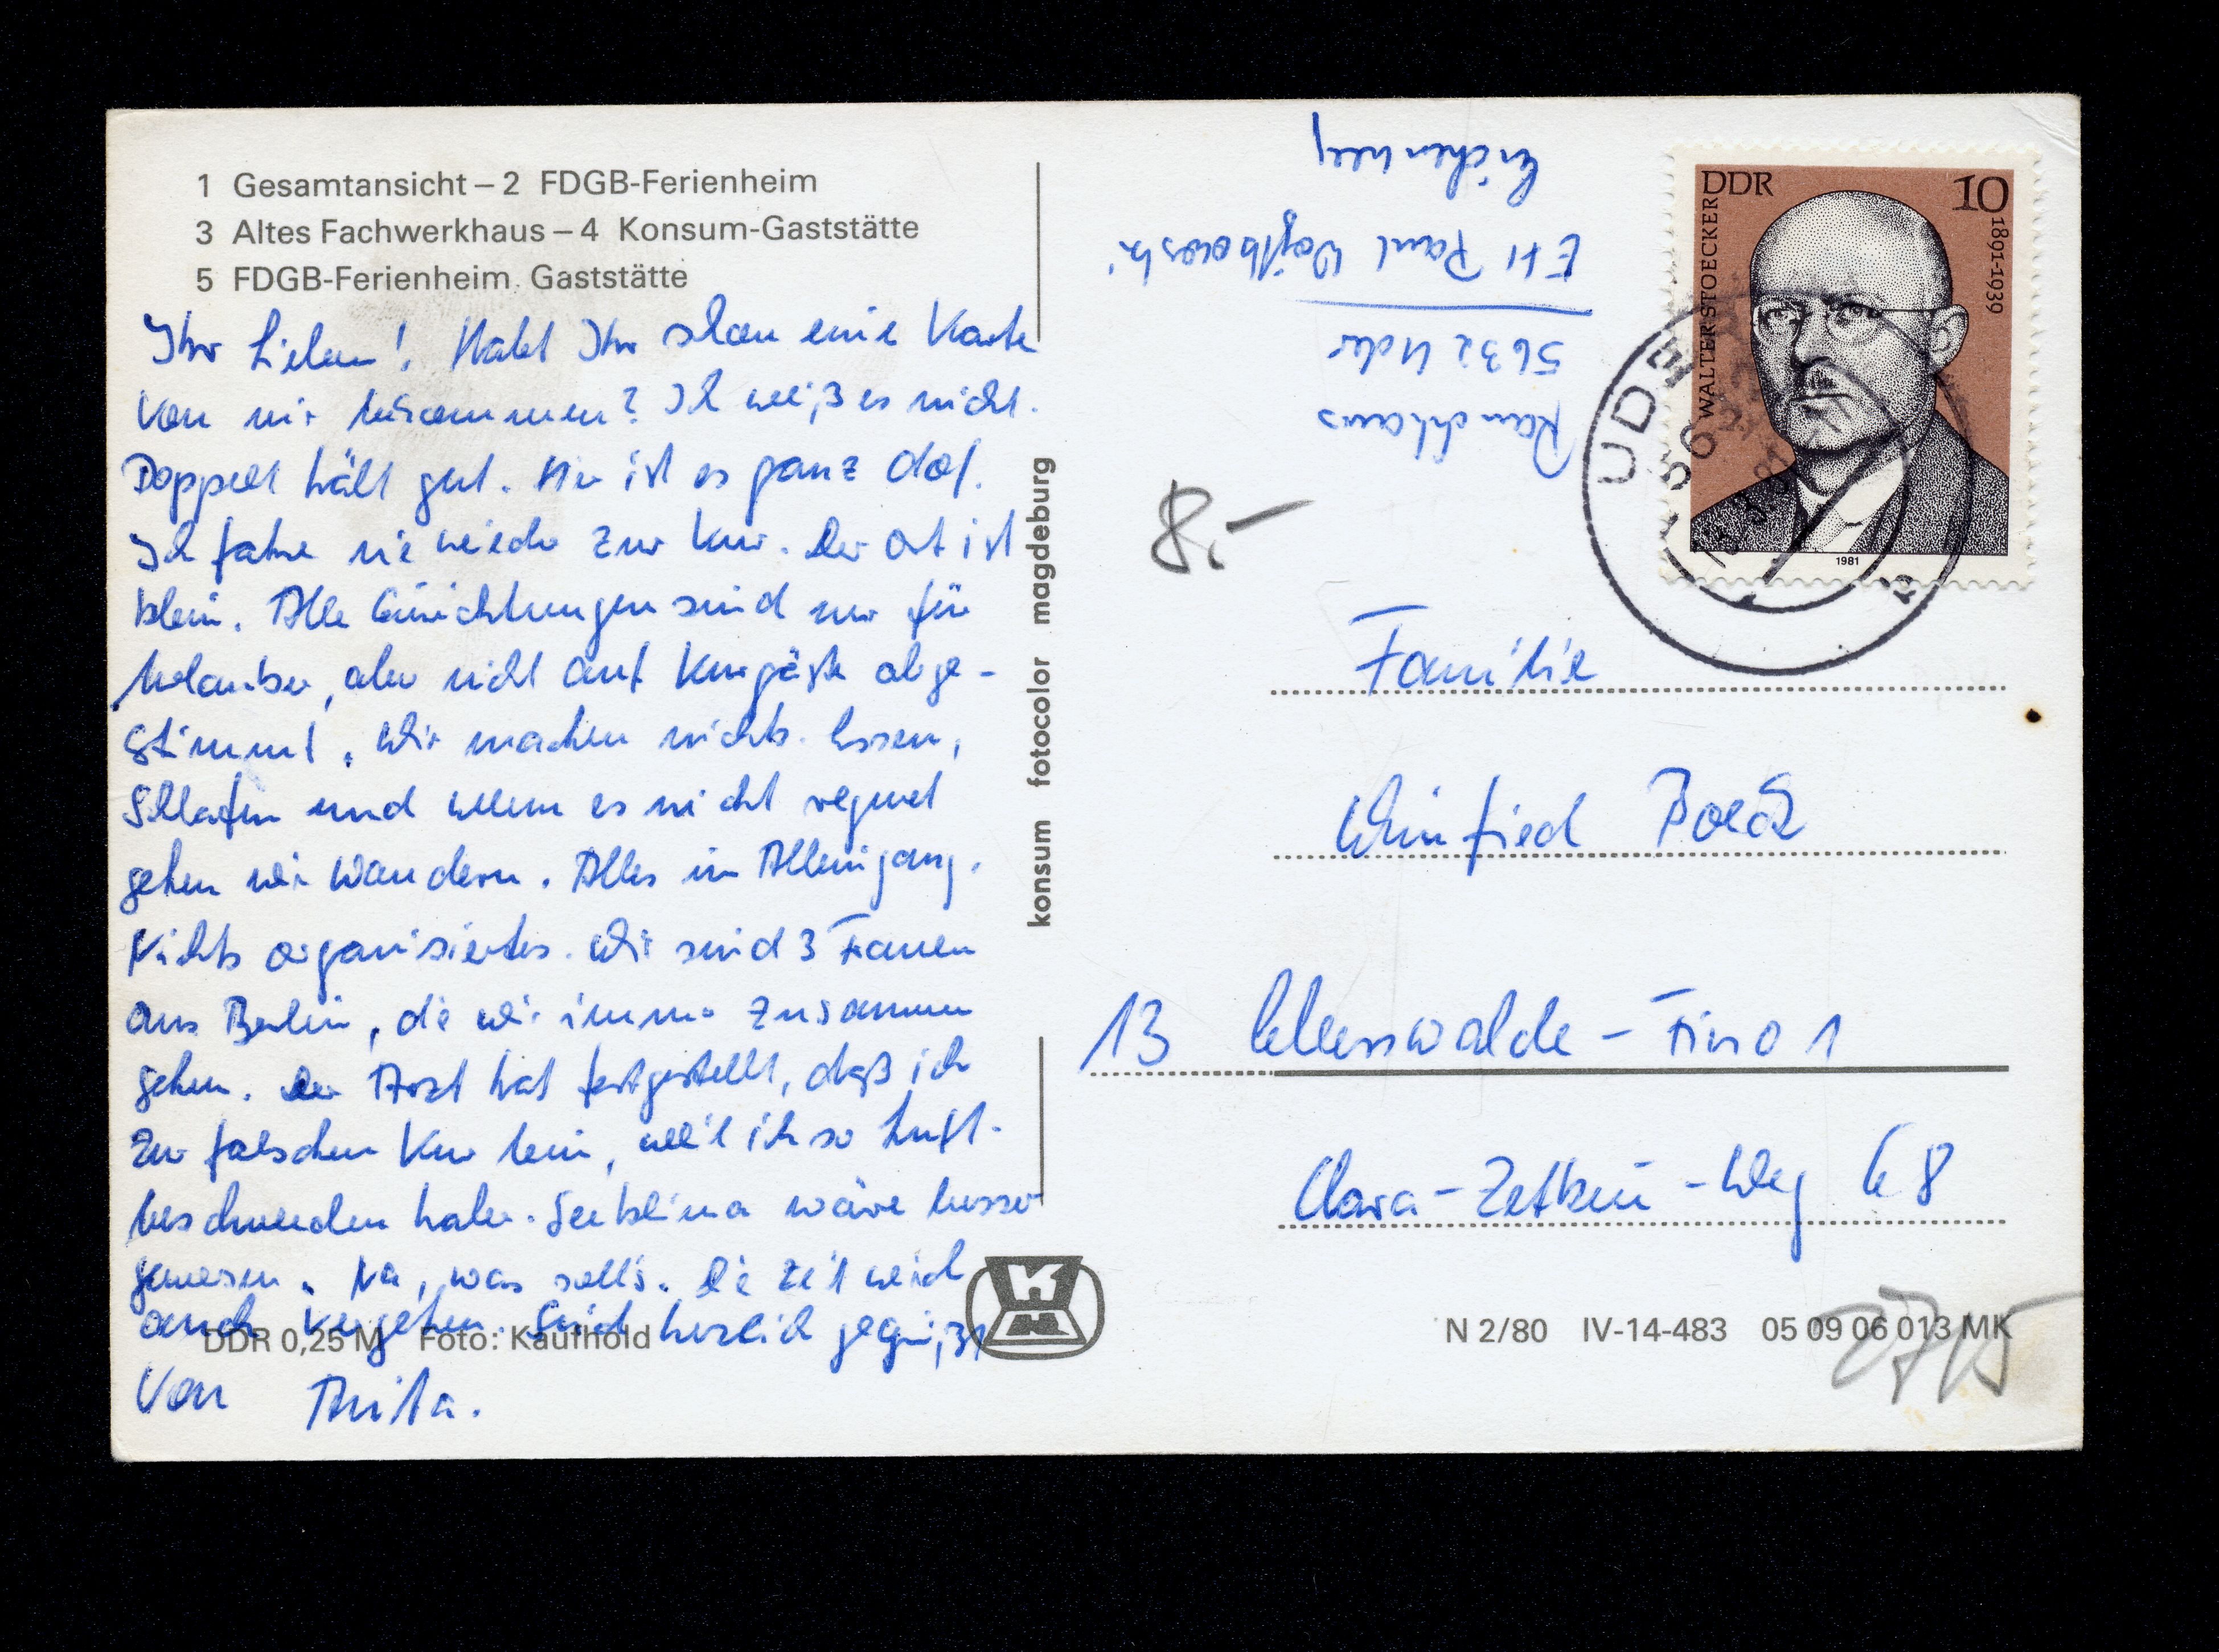 1 Gesamtansicht – 2 FDGB-Ferienheim
3 Altes Fachwerkhaus – 4 Konsum-Gaststätte
5 FDGB-Ferienheim. Gaststätte
Ihr Lieben! Habt Ihr schon eine Karte
von mir bekommen? Ich weiß es nicht.
Doppelt hält gut. Hier ist es ganz doof.
Ich fahre nie wieder zur Kur. Der Ort ist
klein. Alle Einrichtungen sind nur für
Urlauber, aber nicht auf Kurgäste abge-
stimmt. Wir machen nichts. Essen,
Schlafen und wenn es nicht regnet
gehen wir wandern. Alles im Alleingang.
Nichts organisiertes. Wir sind 3 Frauen
aus Berlin, die wir immer zusammen
gehen. Der Arzt hat festgestellt, daß ich
zur falschen Kur bin, weil ich so Luft-
beschwerden habe. Seeklima wäre besser
gewesen. Na, was soll's. Die Zeit wird
auch vergehen. Seid herzlich gegrüßt
von Anita.
DDR 0,25 M Foto: Kaufhold
konsum fotocolor magdeburg
5632 Uder
EH Paul
DDR 10
WALTER STOECKER 1891-1939
1981
UDER
8,-
Familie
Winfried
13 Eberswalde - Finow 1
Clara-Zetkin-Weg 68
N 2/80 IV-14-483 05 09 06 013 MK